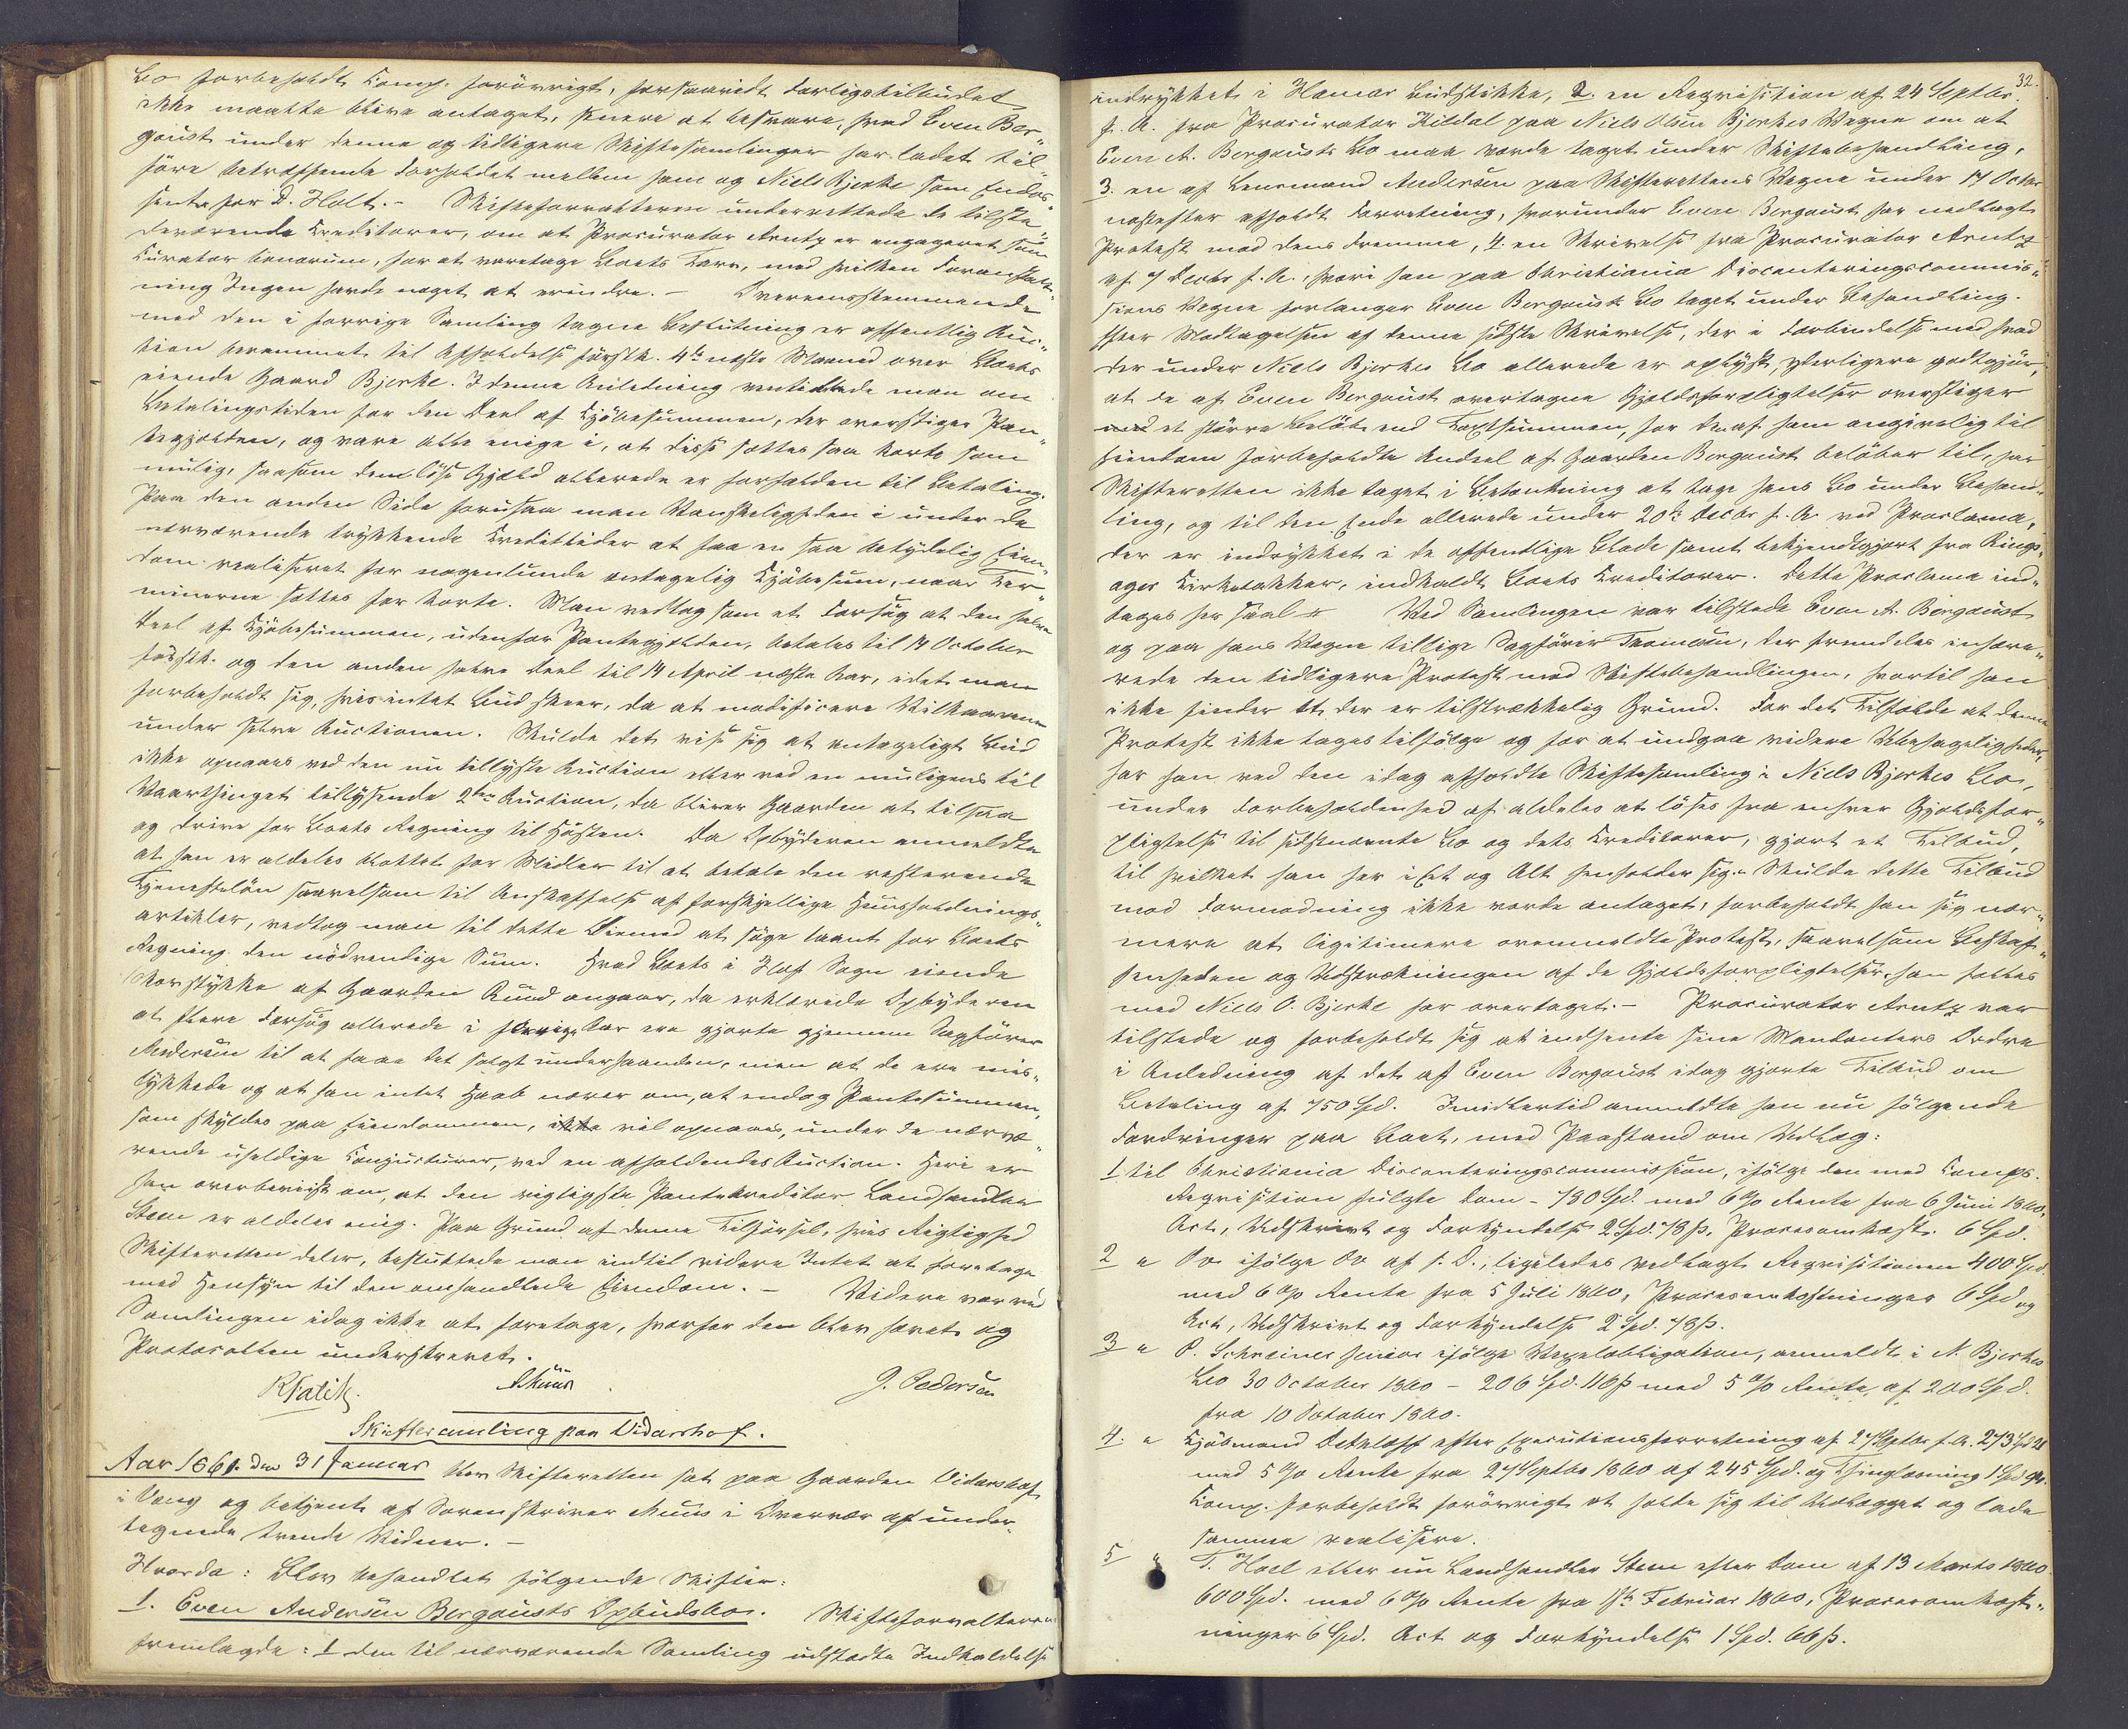 Bo forbeholdt Comp. forøvrigt, forsaavidt Forligstilbudet
ikke maatte blive antaget, senere at besvare, hvad Even Ber-
goust under denne og tidligere Skiftesamlinger har ladet til-
føre betræffende Forholdet mellem ham og Niels Bjerke som Endos-
senter for D. Holt. - Skifteforvalteren underrettede de tilste-
deværende Creditorer, om at Procurator Arntz er engageret som
Curator bonorum, for at varetage Boets Tarv, med hvilken Foranstalt-
ning Ingen havde noget at erindre. - Overeensstemmende
med den i forrige Samling tagne Beslutning er offentlig Auc-
tion berammet til Afholdelse førstk. 4de næste Maaned over Boets
eiende Gaard Bjerke. I denne Anledning ventilerede man om
Betalingstiden for den Deel af Kjøbesummen, der overstiger Pan-
tegjælden, og vare alle enige i, at disse sættes saa korte som
mulig, saasom den løse Gjæld allerede er forfalden til Betaling.
Paa den anden Side forudsaa man Vanskeligheden i under de
nærværende trykkende Credittider at faa en saa betydelig Eien-
dom realiseret for nogenlunde antagelig Kjøbesum, naar Ter-
minerne sættes for korte. Man vedtog som et Forsøg at den halve
Deel af Kjøbesummen, udenfor Pantegjælden, betales til 14 October
førstk. og den anden halve Deel til 14 April næste Aar, idet man
forbeholdt sig, hvis intet Bud skeer, da at modificere Vilkaarene
under selve Auctionen. Skulde det vise sig at antageligt Bud
ikke opnaaes ved den nu tillyste Auction eller ved en muligens til
Vaarthinget tillysende 2den Auction, da bliver Gaarden at tilsaa
og drive for Boets Regning til Høsten. Da Opbyderen anmeldte
at han er aldeles blottet for Midler til at betale den resterende
Tjenesteløn saavelsom til Anskaffelse af forskjellige Huusholdnings-
artikler, vedtog man til dette Øiemed at søge laant for Boets
Regning den nødvendige Sum. Hvad Boets i Hof Sogn eiende
Skovstykke af Gaarden Rund angaaer, da erklærede Opbyderen
at flere Forsøg allerede i forrige Aar ere gjorte gjennem Sagfører
Andersen til at faae det solgt underhaanden, men at de ere mis-
lykkede og at han intet Haab nærer om, at endog Pantesummen,
som skyldes paa Eiendommen, ikke vil opnaaes, under de nærvæ-
rende uheldige Conjuncturer, ved en afholdendes Auction. Heri er
han overbeviist om, at den vigtigste Pantekreditor Landhandler
Steen er aldeles enig. Paa Grund af denne Tilførsel, hvis Rigtighed
Skifteretten deler, besluttede man indtil videre Intet at foretage
med Hensyn til den omhandlede Eiendom. - Videre var ved
Samlingen idag ikke at foretage, hvorfor den blev hævet og
Protocollen underskrevet.
Munn
J. Pedersen
Skiftesamling paa Vidarshof.
Aar 1861. den 31 Januar blev Skifteretten sat paa Gaarden Vidarshof
i Vang og betjent af Sorenskriver Munn i Overvær af under-
tegnede tvende Vidner. -
Hvorda: Blev behandlet følgende Skifter:
1. Even Andersen Bergousts Opbudsbo. Skifteforvalteren
fremlagde: 1 den til nærværende Samling udstædte Indkaldelse
32.
indrykket i Hamar Budstikke, 2. en Reqvisition af 24 Septbr.
f. A. fra Procurator Kildal paa Niels Olsen Bjerkes Vegne om at
Even A. Bergousts Bo maa vorde taget under Skiftebehandling,
3. en af Lensmand Andersen paa Skifterettens Vegne under 17 Octbr
næstefter afholdt Forretning, hvorunder Even Bergoust har nedlagt
Protest mod dens Fremme, 4. en Skrivelse fra Procurator Arntz
af 7 Decbr f. A., hvori han paa Christiania Disconteringscommis-
sions Vegne forlanger Even Bergousts Bo taget under Behandling.
Efter Modtagelsen af denne sidste Skrivelse, der i Forbindelse med hvad
der under Niels Bjerkes Bo allerede er oplyst, yderligere godtgjør,
at de af Even Bergoust overtagne Gjældsforpligtelser overstiger
med et større Beløb end Taxtsummen, hvad den af ham angivelig til
Eiendom forbeholdte Andeel af Gaarden Bergoust beløber til, har
Skifteretten ikke taget i Betænkning at tage hans Bo under Behand-
ling, og til den Ende allerede under 20de Decbr f. A. ved Proclama,
der er indrykket i de offentlige Blade samt bekjendtgjort fra Rings-
ager Kirkebakke, indkaldt Boets Creditorer. Dette Proclama ind-
tages her saal Ved Samlingen var tilstede Even A. Bergoust
og paa hans Vegne tillige Sagfører Thomsen, der fremdeles inhære-
rede den tidligere Protest mod Skiftebehandlingen, hvortil han
ikke finder at der er tilstrækkelig Grund. For det Tilfælde at denne
Protest ikke tages tilfølge og for at undgaa videre Ubehageligheder,
har han ved den idag afholdte Skiftesamling i Niels Bjerkes Bo,
under Forbeholdenhed af aldeles at løses fra enhver Gjældsfor-
pligtelse til sidstnævnte Bo og dets Creditorer, gjort et Tilbud,
til hvilket han her i Eet og Alt henholder sig. Skulde dette Tilbud
mod Formodning ikke vorde antaget, forbeholdt han sig nær-
mere at legitimere ovenmeldte Protest, saavelsom Beskaf-
fenheden og Udstrækningen af de Gjældsforpligtelser, han fælles
med Niels O. Bjerke har overtaget. - Procurator Arntz var
tilstede og forbeholdt sig at indhente sine Mandanters Ordre
i Anledning af det af Even Bergoust idag gjorte Tilbud om
Betaling af 750 Spd. Imidlertid anmeldte han nu følgende
Fordringer paa Boet, med Paastand om Udlæg:
1 til Christiania Disconteringscommission, ifølge den med Comps.
Reqvisition fulgte Dom - 130 Spd. med 6 % Rente fra 6 Juni 1860,
Act, Udskrivt og Forkyndelse 2 Spd. 78 ß, Procesomkost. 6 Spd.
2 " Do ifølge Do af s. D., ligeledes vedlagt Reqvisitionen 400 Spd.
med 6 % Rente fra 5 Juli 1860, Procesomkostninger 6 Spd og
Act, Udskrivt og Forkyndelse 2 Spd. 78 ß.
3 " P. Schreiner senior ifølge Vexelobligation, anmeldt i N. Bjerkes
Bo 30 October 1860 - 206 Spd. 116 ß med 5 % Rente af 200 Spd.
fra 10 October 1860.
4. " Kjøbmand efter Executionsforretning af 27 Septbr f. A. 273 Spd 21
med 5 % Rente fra 27 Septbr 1860 af 245 Spd. og Thinglæsning 1 Spd
Comp. forbeholdt forøvrigt at holde sig til Udlægget og lade
samme realisere.
5 " T. Hoel eller nu Landhandler Steen efter Dom af 13 Marts 1860
600 Spd. med 6 % Rente fra 1ste Februar 1860, Procesomkost-
ninger 6 Spd. Act og Forkyndelse 1 Spd. 66 ß.